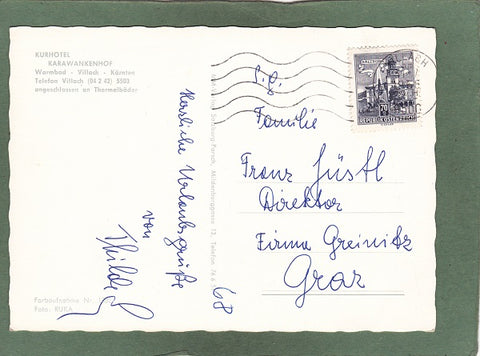 KURHOTEL
KARAWANKENHOF
Warmbad - Villach - Kärnten
Telefon Villach (04 2 42) 5503
angeschlossen an Thermalbäder
Herzliche Urlaubsgrüße
von
Hilde
68
Farbaufnahme Nr.
Foto: RUCA
Salzburg-Parsch,
13, Telefon 76
REPUBLIK ÖSTERREICH
Familie
Franz Jüstl
Direktor
Firma Greinitz
Graz